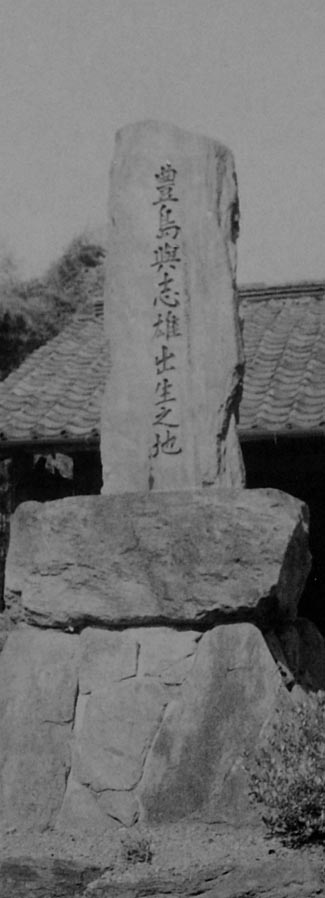 豊島與志雄出生之地